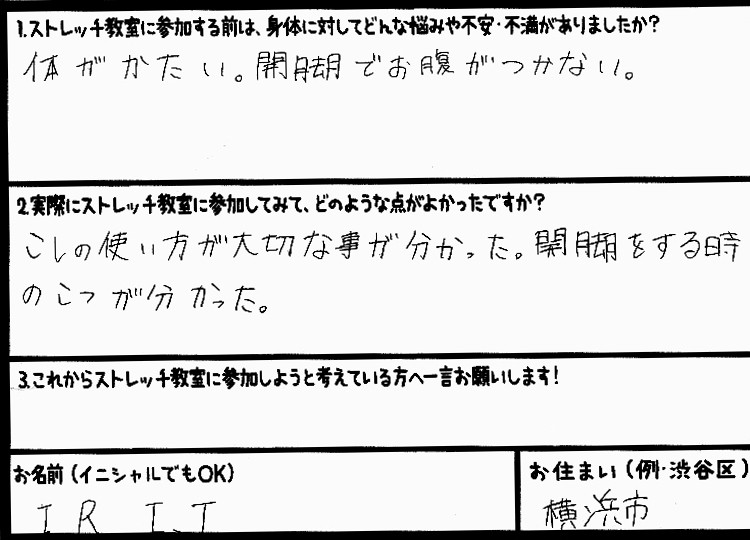 1.ストレッチ教室に参加する前は、身体に対してどんな悩みや不安・不満がありましたか?
体がかたい。開脚でお腹がつかない。
2.実際にストレッチ教室に参加してみて、どのような点がよかったですか?
こしの使い方が大切な事が分かった。開脚をする時
のこつが分かった。
3.これからストレッチ教室に参加しようと考えている方へ一言お願いします!
お名前(イニシャルでもOK)
お住まい(例・渋谷区)
横浜市